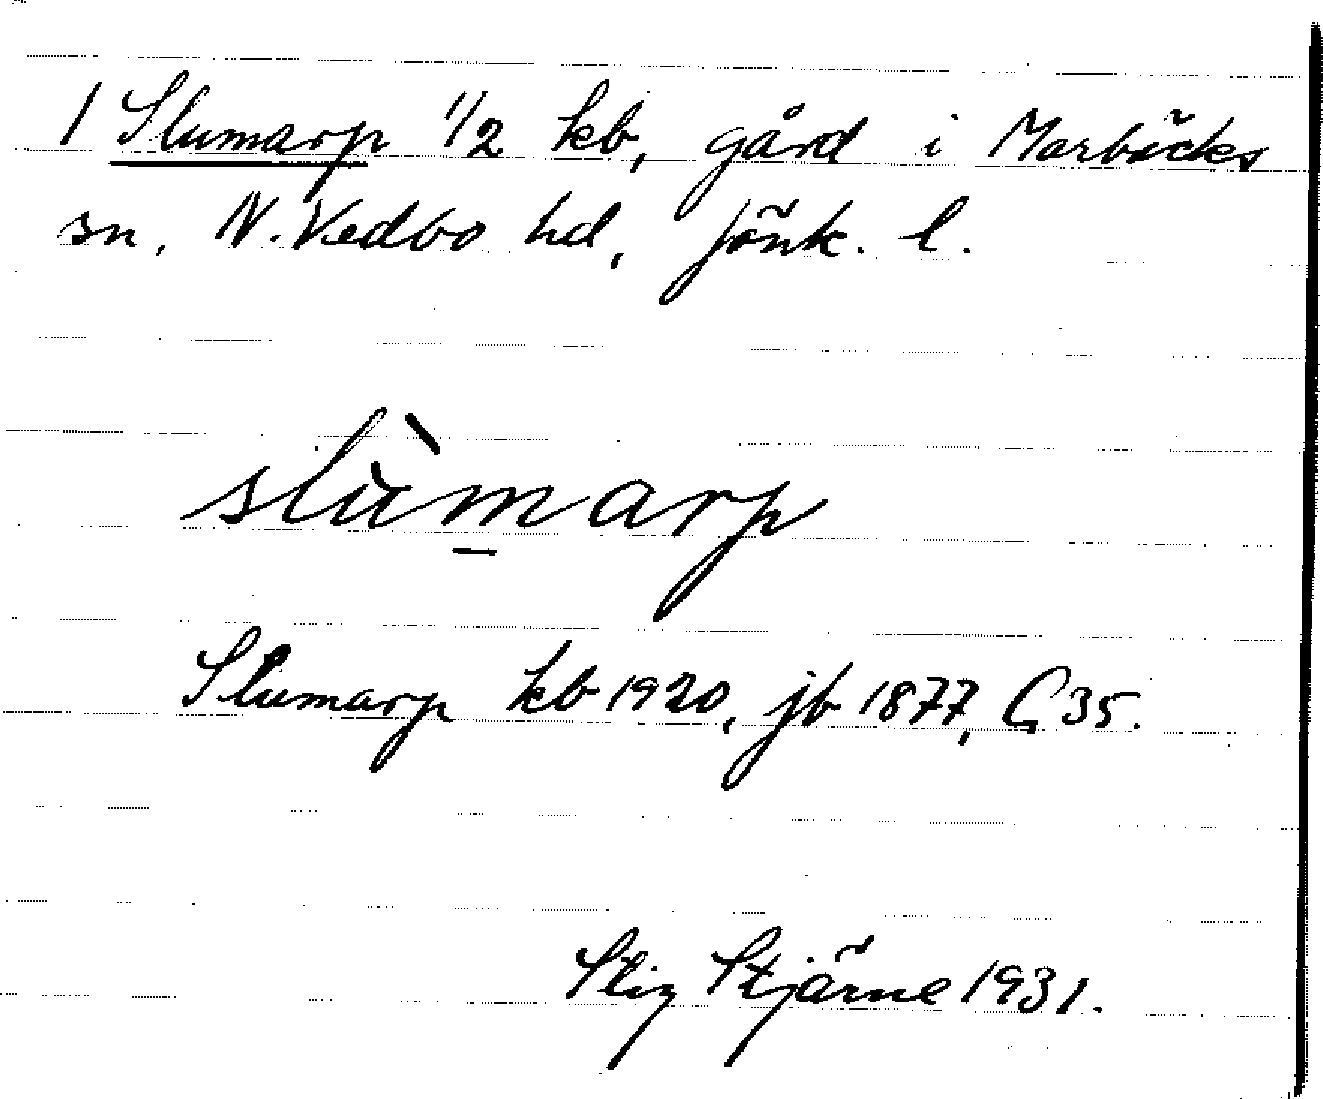 1 Slumarp 1/2 kb, gård i Marbäcks
sn, N. Vedbo hd, Jönk. l.
slùmarp
Slumarp kb 1920, jb 1877, G 35.
Stig Stjärne 1931.